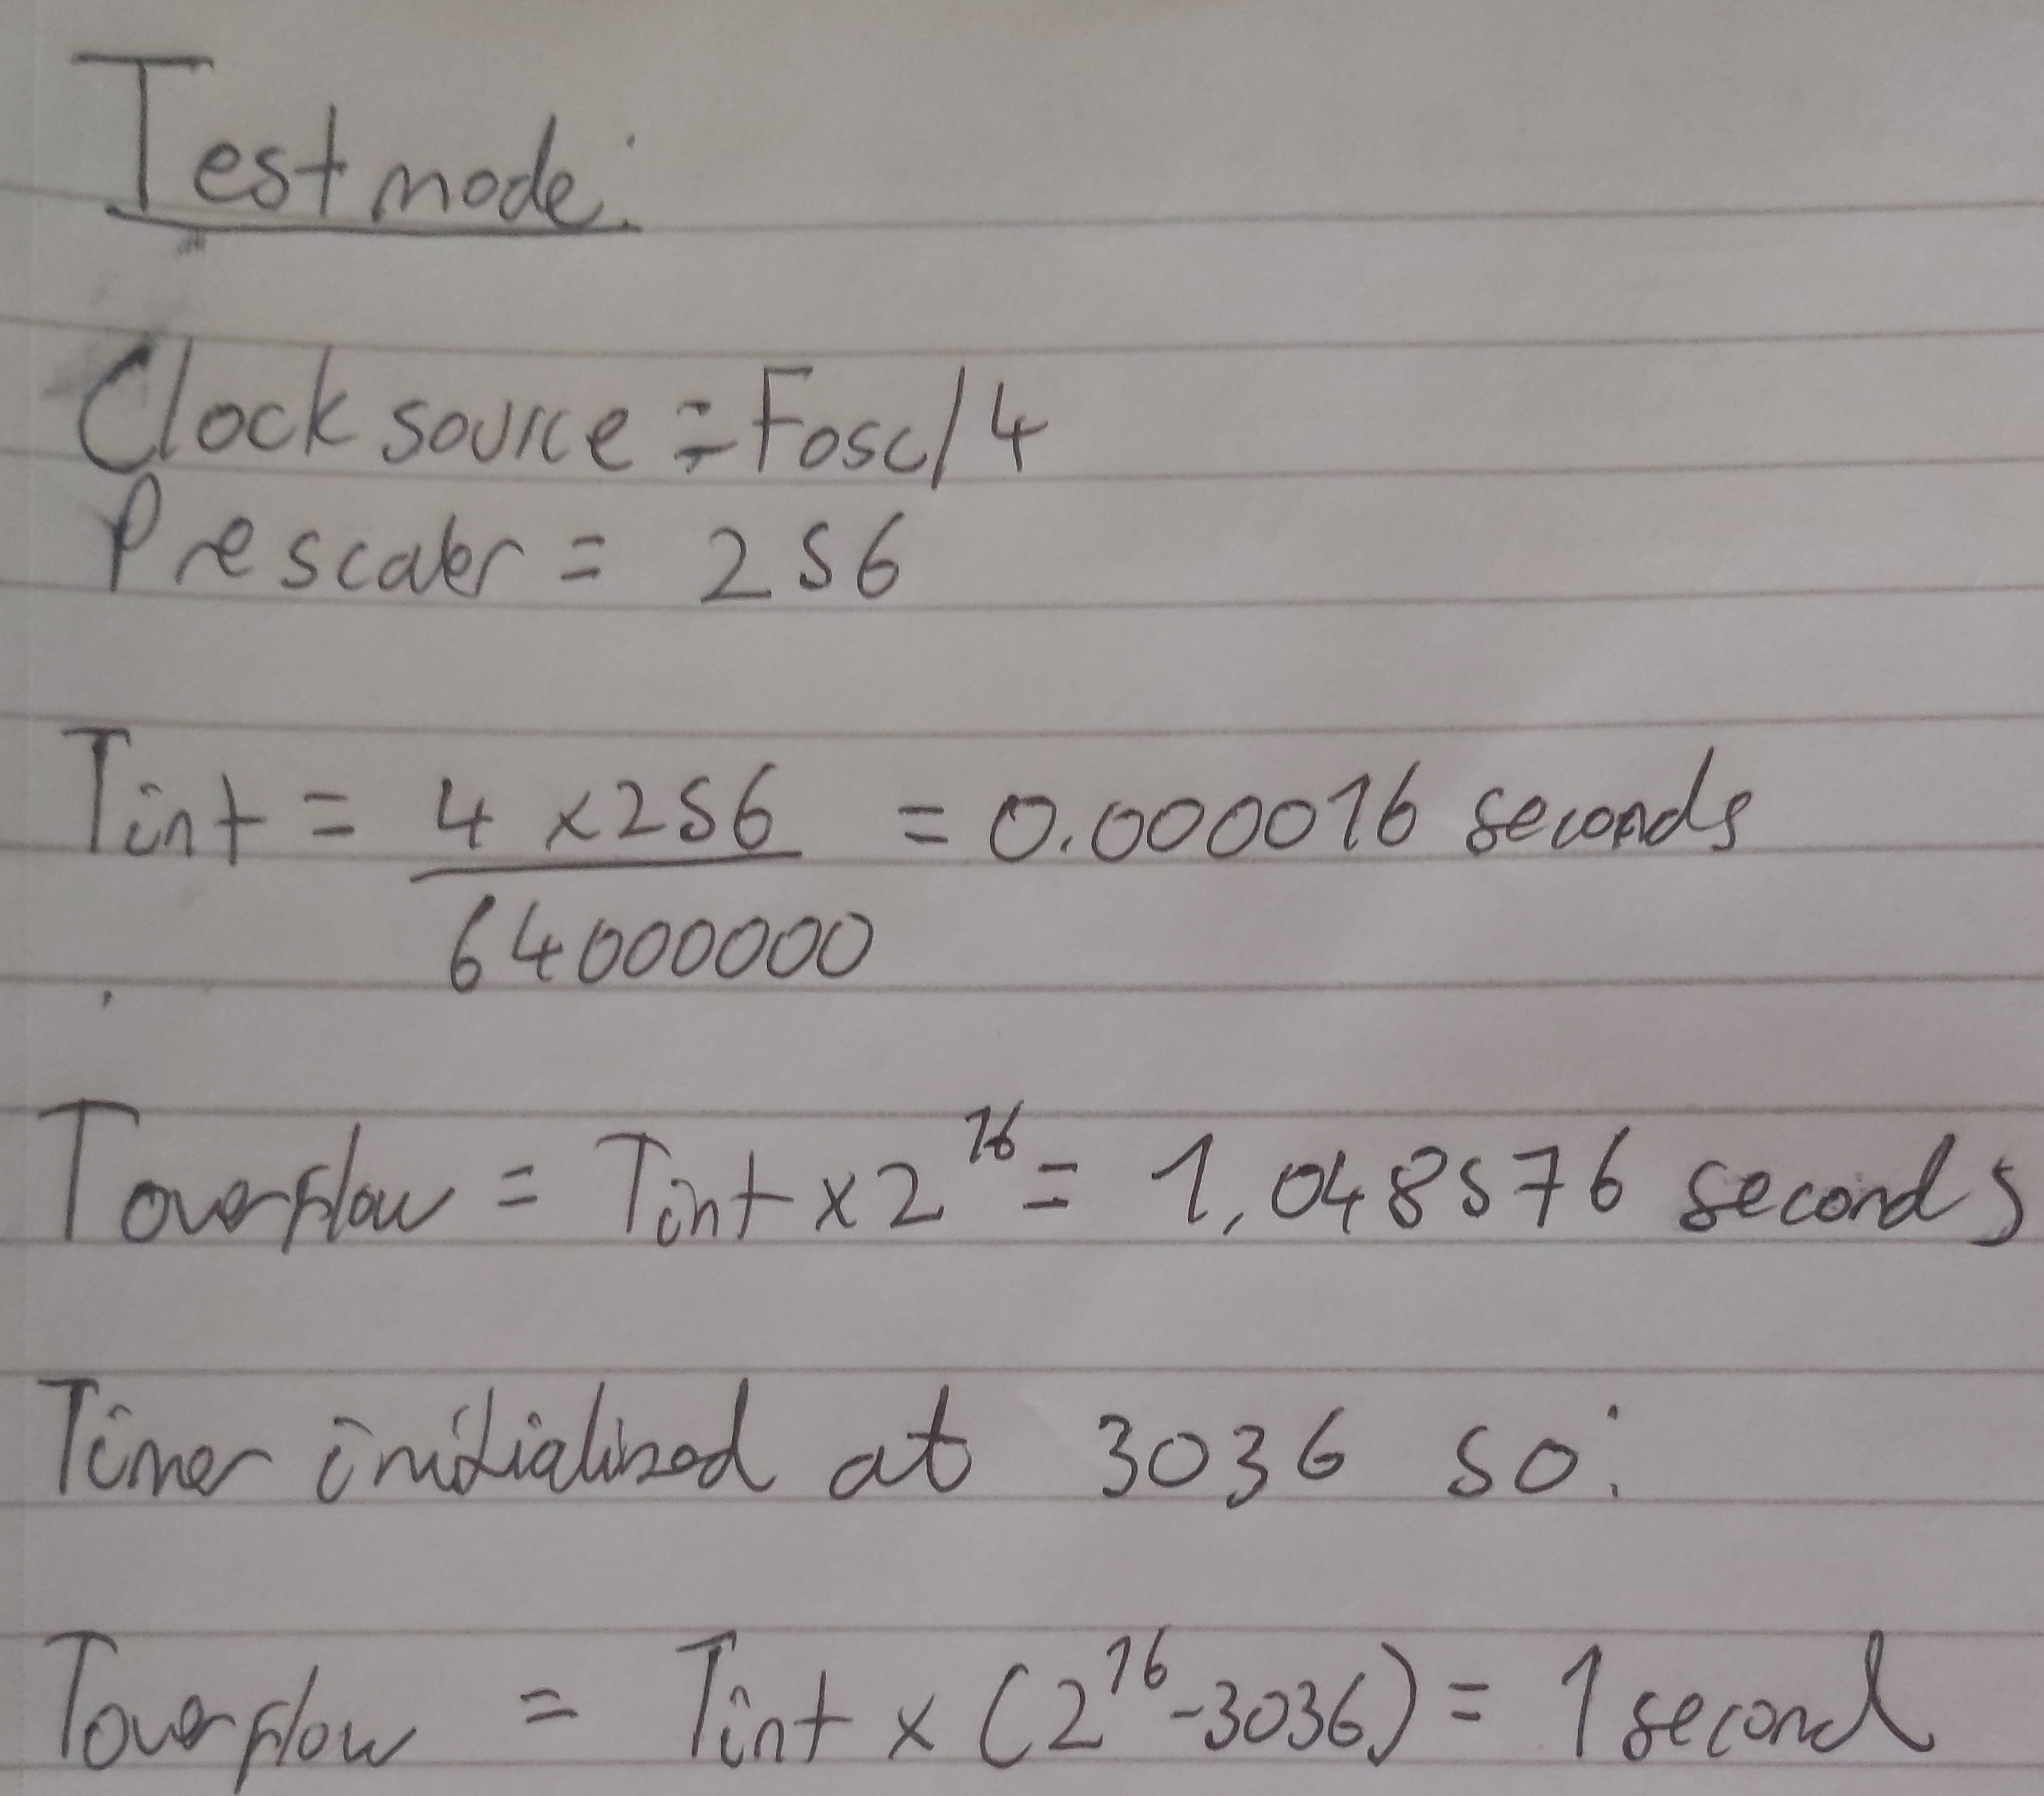 Test mode:
Clock source = Fosc/4
Prescaler = 256
Tint = 4 x 256 / 64000000 = 0.000016 seconds
Toverflow = Tint x 2^16 = 1,048576 seconds
Timer initialised at 3036 so:
Toverflow = Tint x (2^16 - 3036) = 1 second